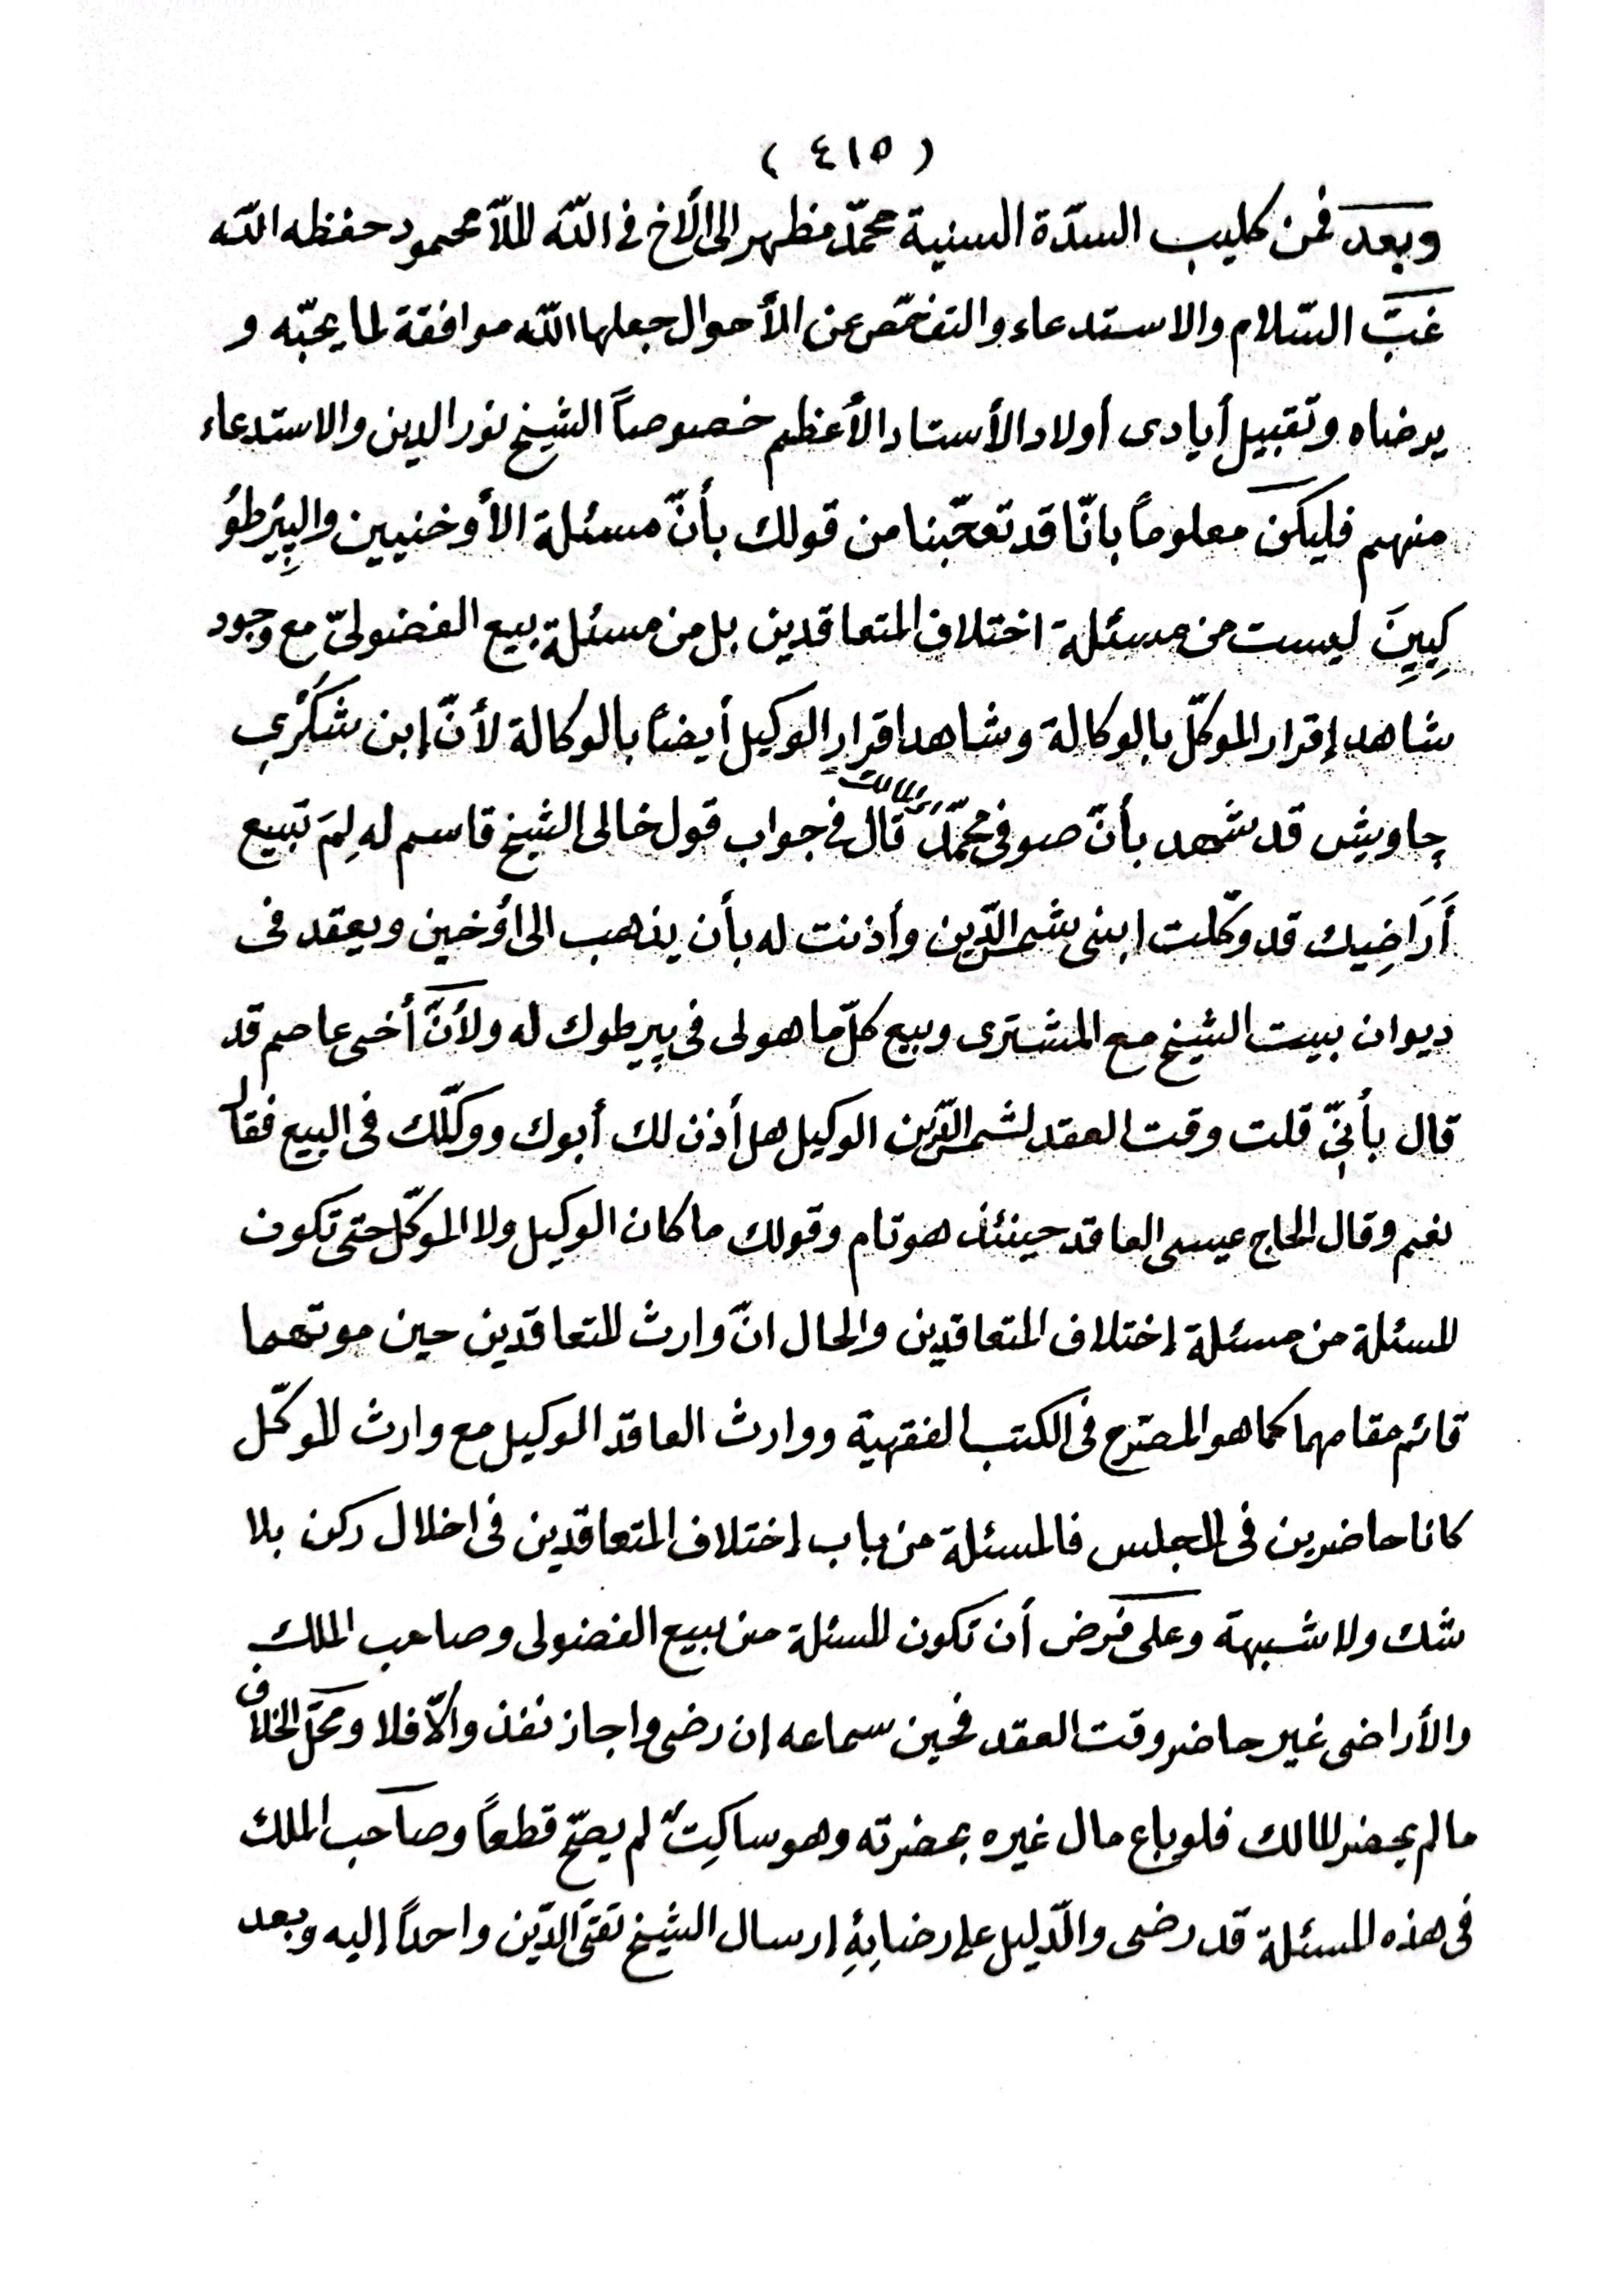 ( ٤١٥ )
وبعد فمن كليب السدّة السنية محمّد مظهر الى الأخ فى اللّٰه الملّا محمود حفظه اللّٰه
غبّ السّلام والاستدعاء والتفحّص عن الأحوال جعلها اللّٰه موافقة لما يحبّه و
يرضاه وتقبيل أيادى أولاد الأستاد الأعظم خصوصاً الشيخ نور الدين والاستدعاء
منهم فليكن معلوماً بانّا قد تعجّبنا من قولك بأنّ مسئلة الأوخنيين والپِيْرطُو
كِيِينَ ليست من مسئلة اختلاف المتعاقدين بل من مسئلة بيع الفضولىّ مع وجود
شاهد إقرار الموكّل بالوكالة وشاهد اقرار الوكيل أيضاً بالوكالة لأنّ إبن شُكْرِي
چاويش قد شهد بأنّ صوفى محمّد المالك قال فى جواب قول خالى الشيخ قاسم له لِمَ تبيع
أَرَاضِيك قد وكّلت ابنى شمس الدّين وأذنت له بأن يذهب الى اُوخين ويعقد فى
ديوان بيت الشيخ مع المشترى وبيع كلّ ما هو لى فى پيرطوك له ولأنّ أخى عاصم قد
قال بأنّى قلت وقت العقد لشمس الدّين الوكيل هل أذن لك أبوك ووكّلك فى البيع فقال
نعم وقال الحاج عيسى العاقد حينئذ هو تام وقولك ما كان الوكيل ولا الموكّل حتى تكون
المسئلة من مسئلة إختلاف المتعاقدين والحال انّ وارث المتعاقدين حين موتهما
قائم مقامهما كما هو المصرّح فى الكتب الفقهية ووارث العاقد الوكيل مع وارث الموكّل
كانا حاضرين فى المجلس فالمسئلة من باب إختلاف المتعاقدين فى اخلال ركن بلا
شك ولا شبهة وعلى فرض أن تكون المسئلة من بيع الفضولى وصاحب الملك
والأراضى غير حاضر وقت العقد فحين سماعه إن رضى واجاز نفذ والّا فلا ومحلّ الخلاف
ما لم يحضر المالك فلو باع مال غيره بحضرته وهو ساكِتٌ لم يصحّ قطعاً وصاحب الملك
فى هذه المسئلة قد رضى والدّليل على رضايِهِ إرسال الشيخ تقىّ الدّين واحداً إليه وبعد